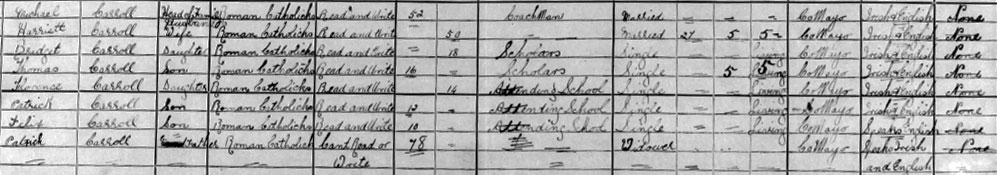 Michael Carroll Head of Family Roman Catholicks Read and Write 52 — Coachman Married = = = Co Mayo Irish & English None
Husband
Harriett Carroll Wife Roman Catholicks Read and Write 50 — Married 27 5 5 Co Mayo Irish & English None
Bridget Carroll Daughter Roman Catholicks Read and Write 18 Scholars Single Living Co Mayo Irish & English None
Thomas Carroll Son Roman Catholicks Read and Write 16 = Scholars Single 5 5 Co Mayo Irish & English None
Florence Carroll Daughter Roman Catholicks Read and Write 14 Attending School Single Living Co Mayo Irish & English None
Patrick Carroll Son Roman Catholicks Read and Write 12 Attending School Single Living Co Mayo Irish & English None
Carroll Son Roman Catholicks Read and Write 10 Attending Single Living Co Mayo Speaks English None
Patrick Carroll Roman Catholick Cant Read or 78 = Widower Co Mayo Speaks Irish None
Write and English